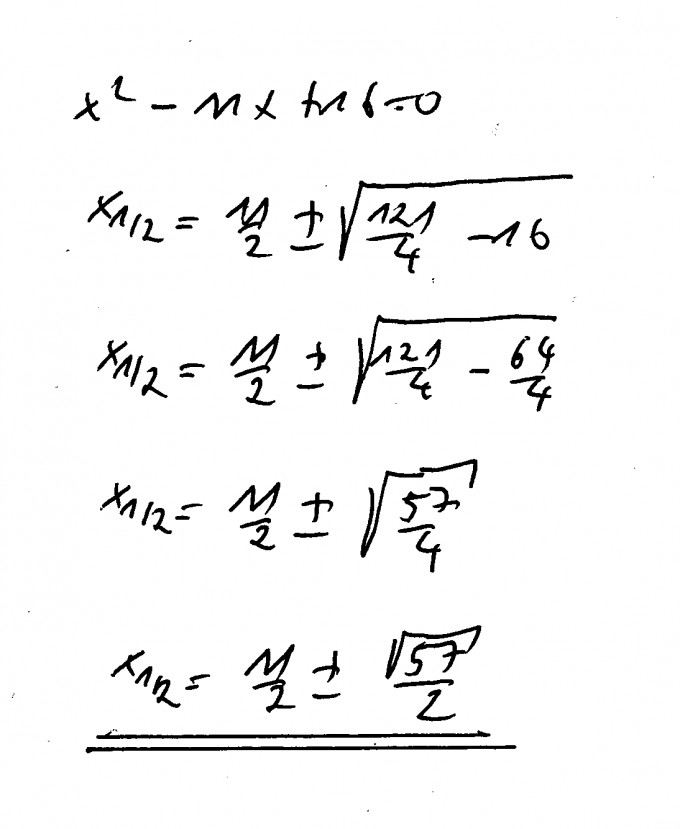 x² - 11x + 16 = 0
x₁/₂ = 11/2 ± √(121/4 - 16)
x₁/₂ = 11/2 ± √(121/4 - 64/4)
x₁/₂ = 11/2 ± √(57/4)
x₁/₂ = 11/2 ± √57/2